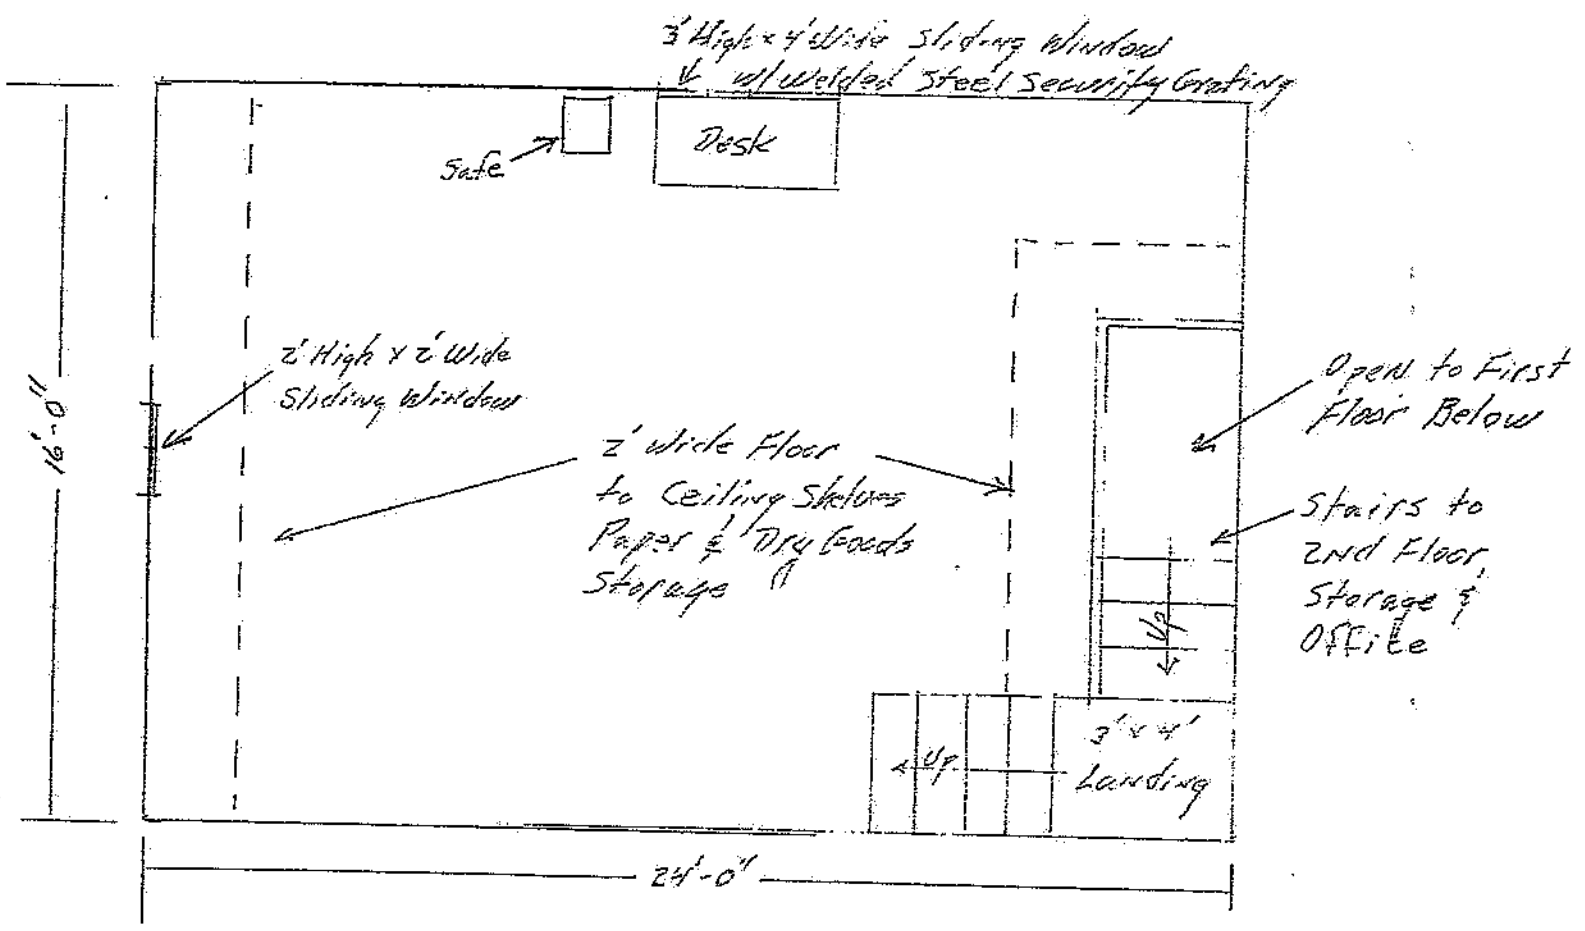 3' High x 4' Wide Sliding Window
w/ Welded Steel Security Grating
Safe
Desk
2' High x 2' Wide
Sliding Window
16'-0"
2' Wide Floor
to Ceiling Shelves
Paper & Dry Goods
Storage
Open to First
Floor Below
Stairs to
2nd Floor,
Storage &
Office
Up
Up
3' x 4'
Landing
24'-0"